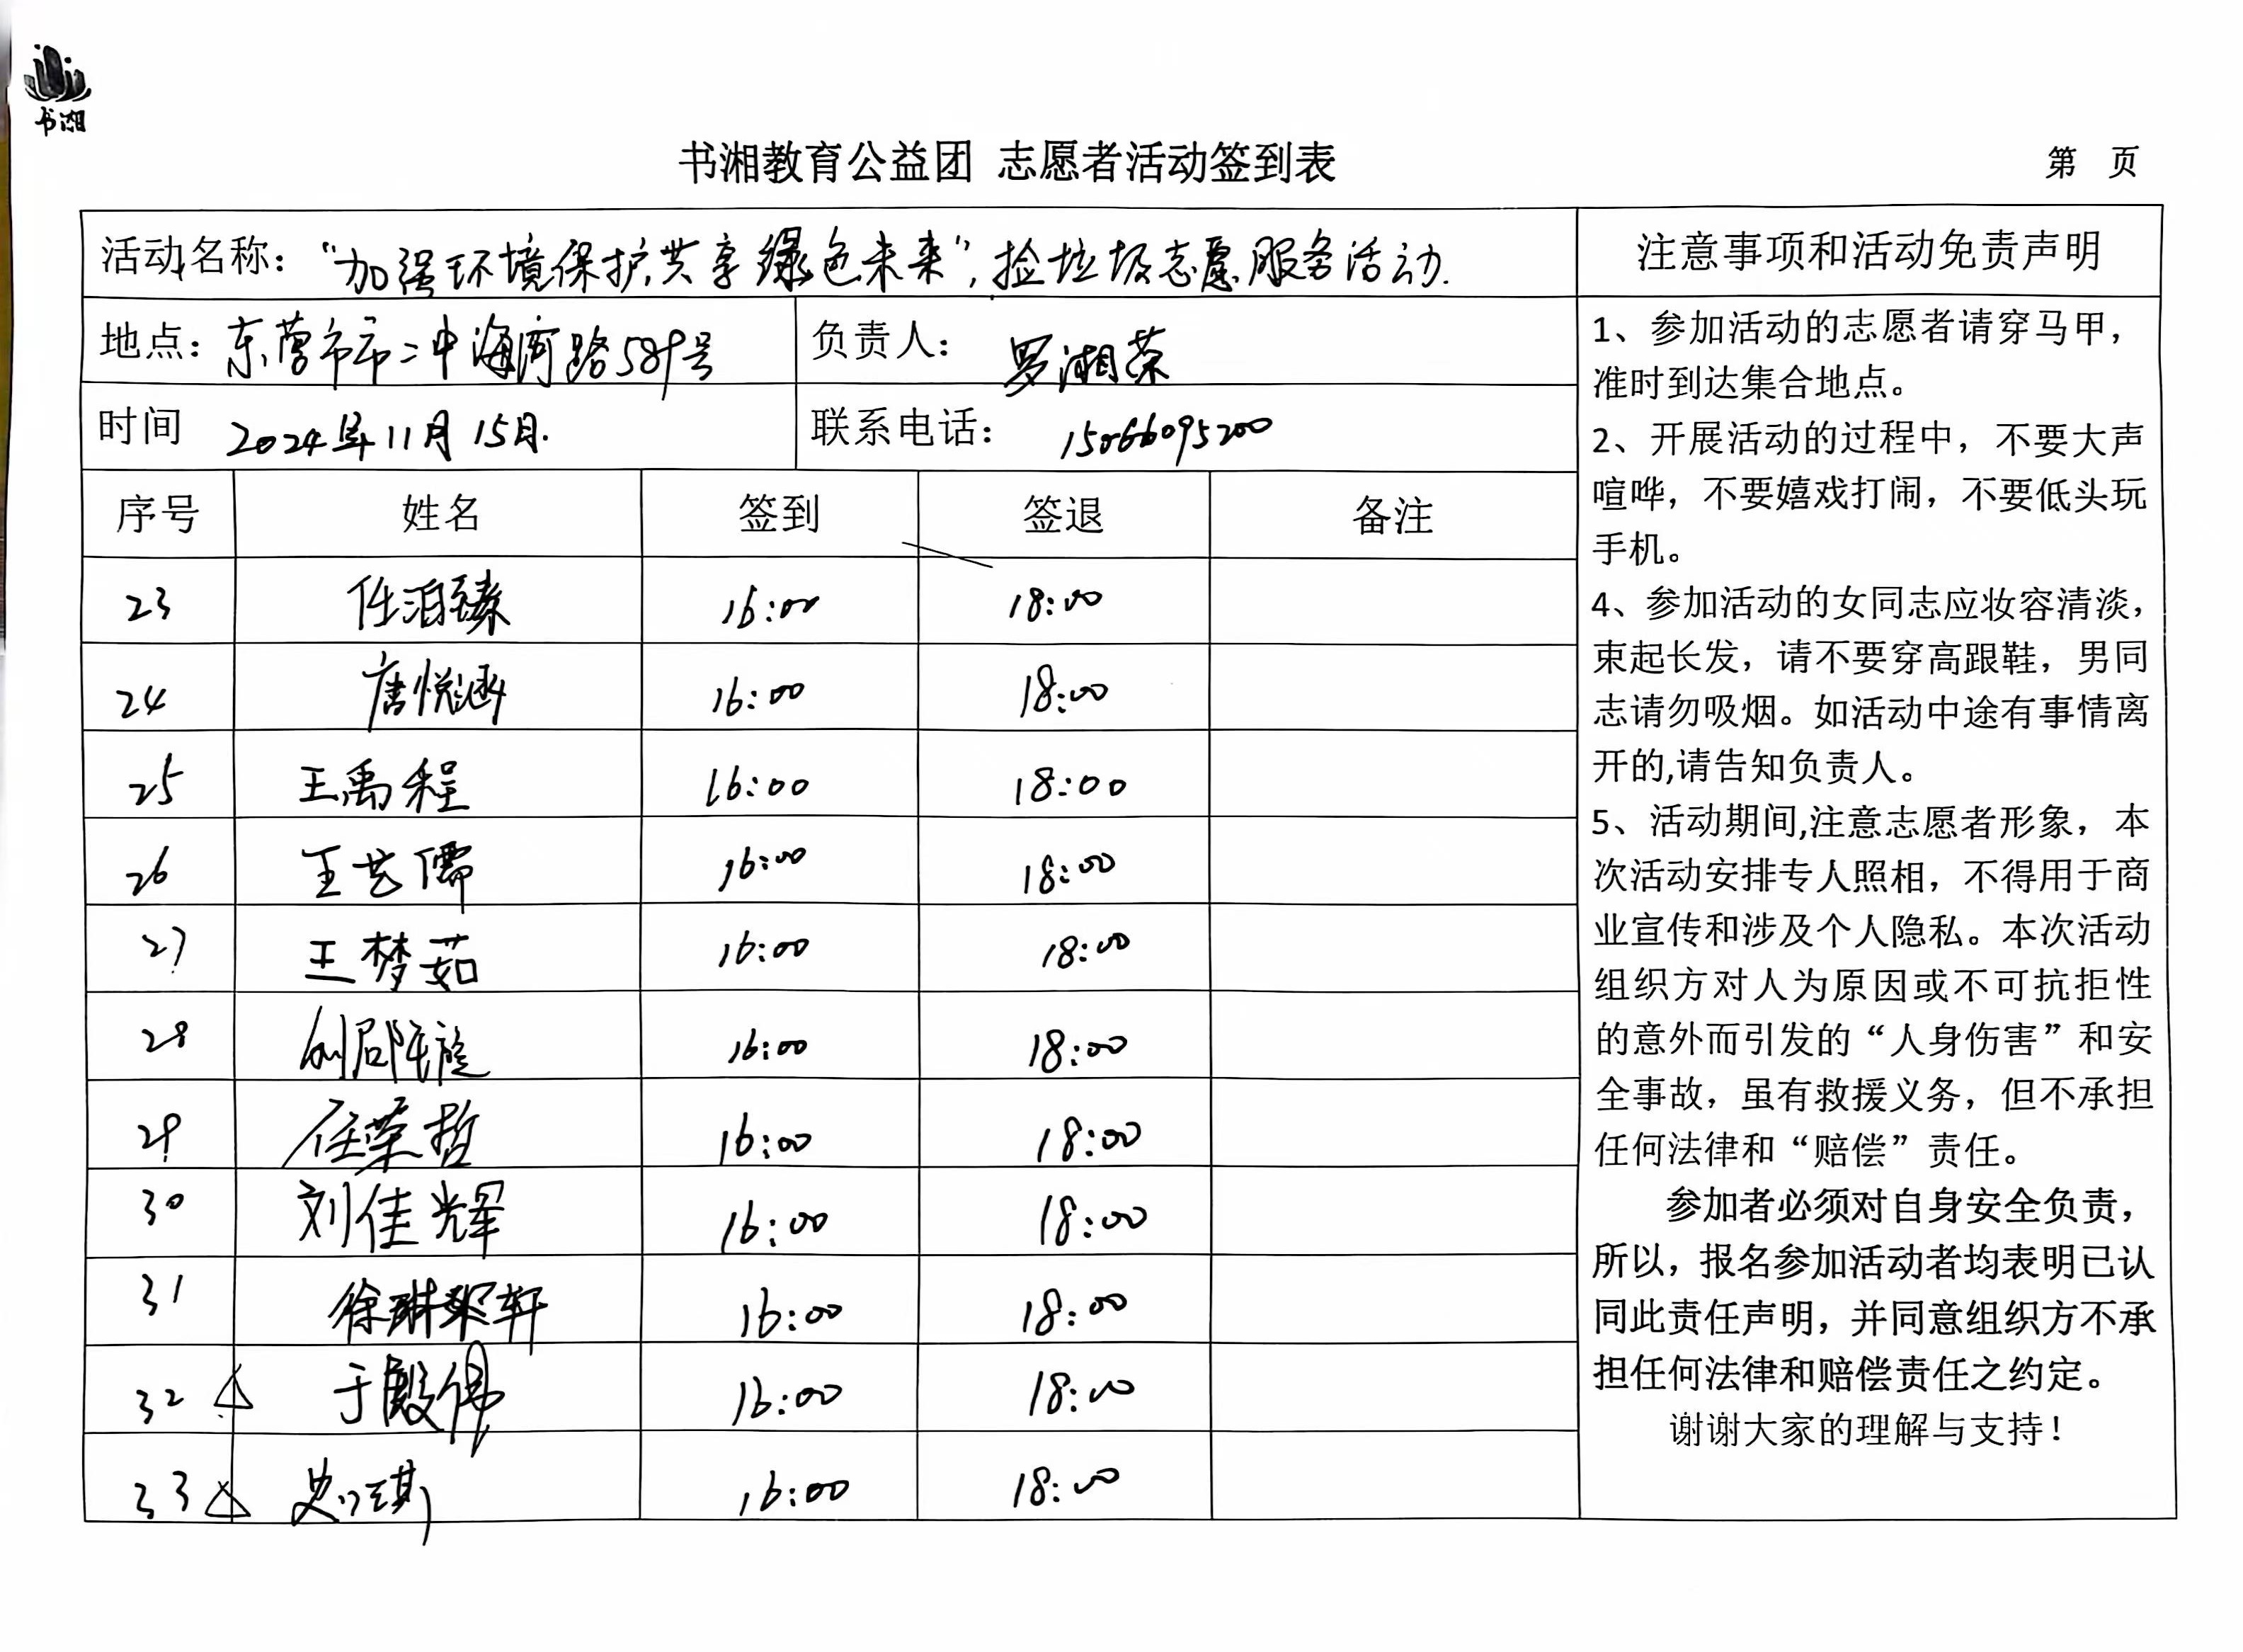 书湘
书湘教育公益团 志愿者活动签到表
第 页
活动名称： “加强环境保护,共享绿色未来”, 捡垃圾志愿服务活动.
注意事项和活动免责声明
地点： 东营市市二中海河路589号 负责人： 罗湘荣
时间 2024年11月15日. 联系电话： 15066095200
序号 姓名 签到 签退 备注
23 任泊臻 16:00 18:00
24 唐悦涵 16:00 18:00
25 王禹程 16:00 18:00
26 王艺儒 16:00 18:00
27 王梦茹 16:00 18:00
28 16:00 18:00
29 任荣哲 16:00 18:00
30 刘佳辉 16:00 18:00
31 徐 轩 16:00 18:00
32 △ 于殿伟 16:00 18:00
33 △ 16:00 18:00
1、参加活动的志愿者请穿马甲，
准时到达集合地点。
2、开展活动的过程中，不要大声
喧哗，不要嬉戏打闹，不要低头玩
手机。
4、参加活动的女同志应妆容清淡，
束起长发，请不要穿高跟鞋，男同
志请勿吸烟。如活动中途有事情离
开的,请告知负责人。
5、活动期间,注意志愿者形象，本
次活动安排专人照相，不得用于商
业宣传和涉及个人隐私。本次活动
组织方对人为原因或不可抗拒性
的意外而引发的“人身伤害”和安
全事故，虽有救援义务，但不承担
任何法律和“赔偿”责任。
参加者必须对自身安全负责，
所以，报名参加活动者均表明已认
同此责任声明，并同意组织方不承
担任何法律和赔偿责任之约定。
谢谢大家的理解与支持！